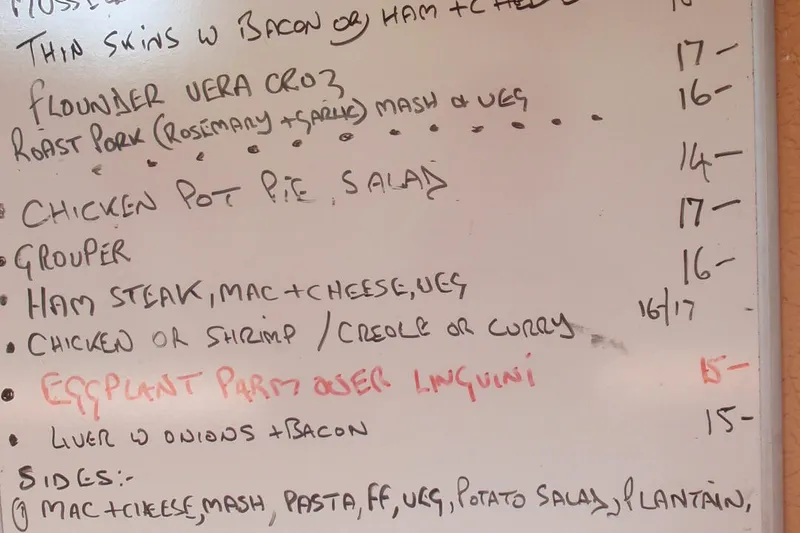 THIN SKINS W BACON OR, HAM + CHEE
17-
FLOUNDER VERA CROZ
16-
ROAST PORK (ROSEMARY + GARLIC) MASH & VEG
14-
CHICKEN POT PIE, SALAD
17-
• GROUPER
16-
• HAM STEAK, MAC + CHEESE, VEG
16/17 -
• CHICKEN OR SHRIMP / CREOLE OR CURRY
• EGGPLANT PARM OVER LINGUINI 15-
• LIVER W ONIONS + BACON 15-
SIDES:-
① MAC + CHEESE, MASH, PASTA, FF, VEG, POTATO SALAD, PLANTAIN,